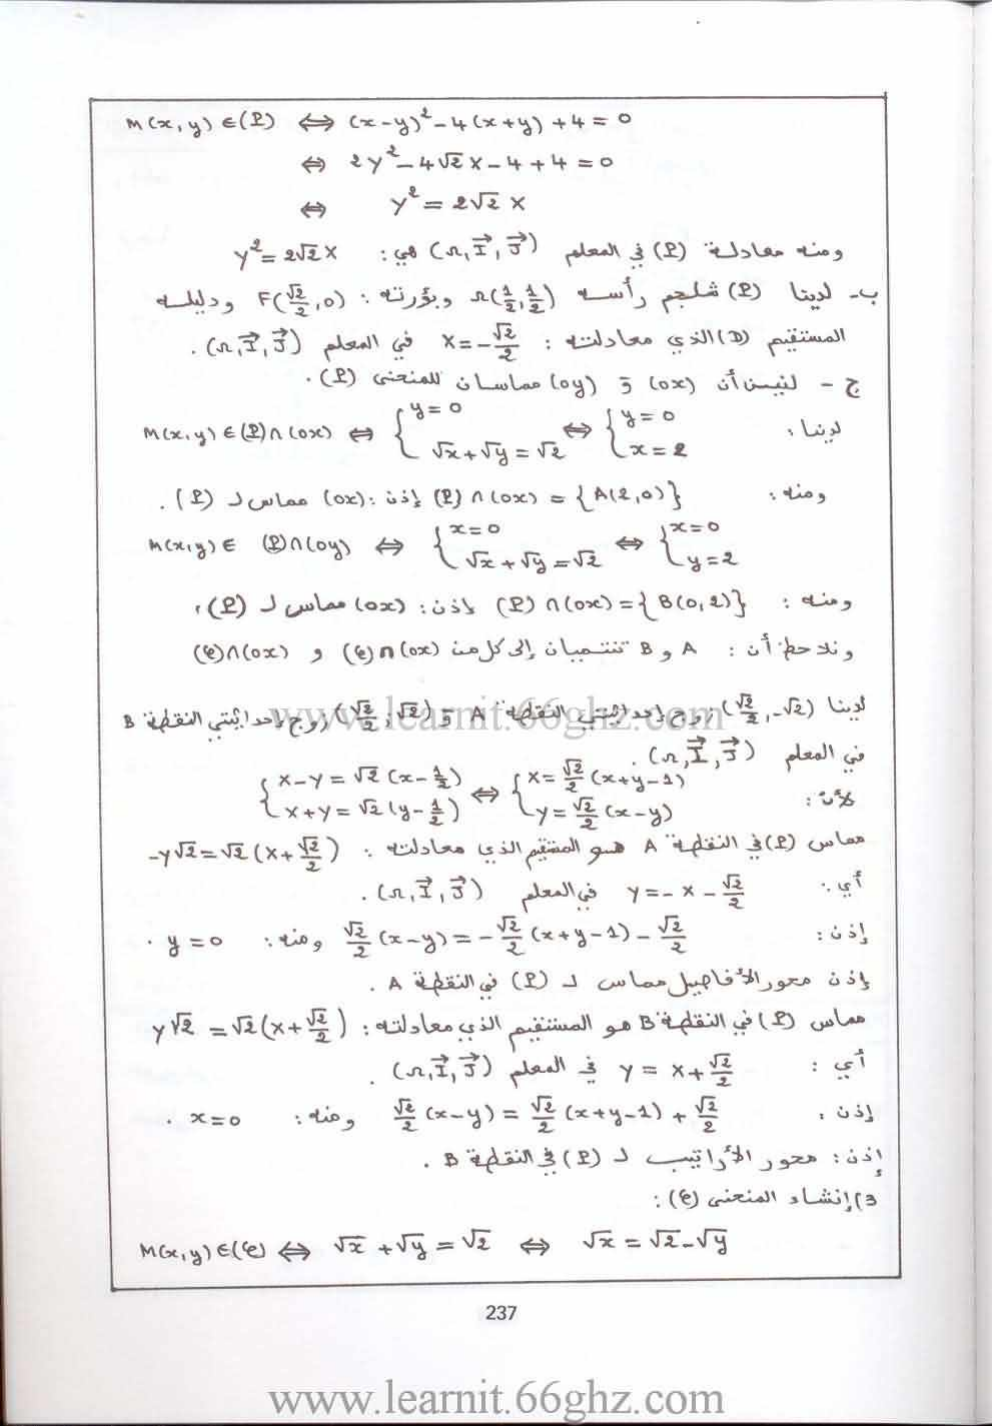 M(x,y) ∈(P) ⟺ (x-y)² - 4(x+y) + 4 = 0
⟺ 2Y² - 4√2 X - 4 + 4 = 0
⟺ Y² = 2√2 X
ومنه معادلة (P) في المعلم (Ω,I⃗,J⃗) هي : Y² = 2√2 X
ب- لدينا (P) شلجم رأسه Ω(1/2,1/2) وبؤرته : F(√2/2,0) ودليله
المستقيم (D) الذي معادلته : X = -√2/2 في المعلم (Ω,I⃗,J⃗) .
ج - لنبين أن (ox) و (oy) مماسان للمنحنى (P) .
لدينا : M(x,y) ∈ (P)∩(ox) ⟺ { y=0 ; √x+√y = √2 ⟺ { y=0 ; x=2
ومنه : (P)∩(ox) = {A(2,0)} إذن : (ox) مماس لـ (P) .
M(x,y) ∈ (P)∩(oy) ⟺ { x=0 ; √x+√y=√2 ⟺ { x=0 ; y=2
ومنه : (P)∩(ox) = {B(0,2)} إذن : (ox) مماس لـ (P) ،
ونلاحظ أن : A و B تنتميان إلى كل من (ox)∩(C) و (ox)∩(C)
لدينا (√2/2,-√2) زوج إحداثيتي النقطة A و (√2/2,√2) زوج إحداثيتي النقطة B
في المعلم (Ω,I⃗,J⃗) .
لأن : { X-Y = √2(x-1/2) ; X+Y = √2(y-1/2) ⟺ { X = √2/2 (x+y-1) ; Y = √2/2 (x-y)
مماس (P) في النقطة A هو المستقيم الذي معادلته : -Y√2 = √2(X+√2/2)
أي : Y = -X - √2/2 في المعلم (Ω,I⃗,J⃗) .
إذن : √2/2 (x-y) = -√2/2 (x+y-1) - √2/2 ومنه : y = 0 .
إذن محور الأفاصيل مماس لـ (P) في النقطة A .
مماس (P) في النقطة B هو المستقيم الذي معادلته : Y√2 = √2(X+√2/2)
أي : Y = X + √2/2 في المعلم (Ω,I⃗,J⃗) .
إذن : √2/2 (x-y) = √2/2 (x+y-1) + √2/2 ومنه : x=0 .
إذن : محور الأراتيب لـ (P) في النقطة B .
3) إنشاء المنحنى (C) :
M(x,y) ∈ (C) ⟺ √x + √y = √2 ⟺ √x = √2 - √y
237
www.learnit.66ghz.com
www.learnit.66ghz.com